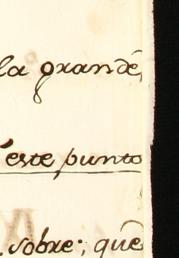 la grande,
este punto
sobre; que